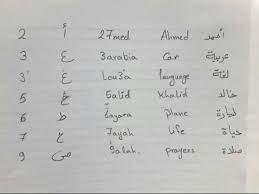 2 أ 27med Ahmed أحمد
3 ع 3arabia Car عربية
3' غ Lou3'a language لغة
5 خ 5alid Khalid خالد
6 ط 6ayara plane طيارة
7 ح 7ayah life حياة
9 ص 9alah prayers صلاة